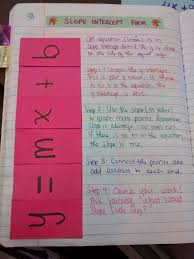 SLOPE INTERCEPT FORM
y = mx + b
An equation (linear) is in
slope intercept form if the y is alone
on one side of the equal sign.
Step 1: Graph the y-intercept
This is your b value. If there
is no b in the equation, the
y-intercept is zero.
Step 2: Use the slope (m value)
to graph more points. Remember
slope is always rise over run.
If there is no m in the equation
the slope is
Step 3: Connect the points and
add arrows to each end.
Step 4: Check your work!
Ask yourself, "What would
Slope Dude say?"